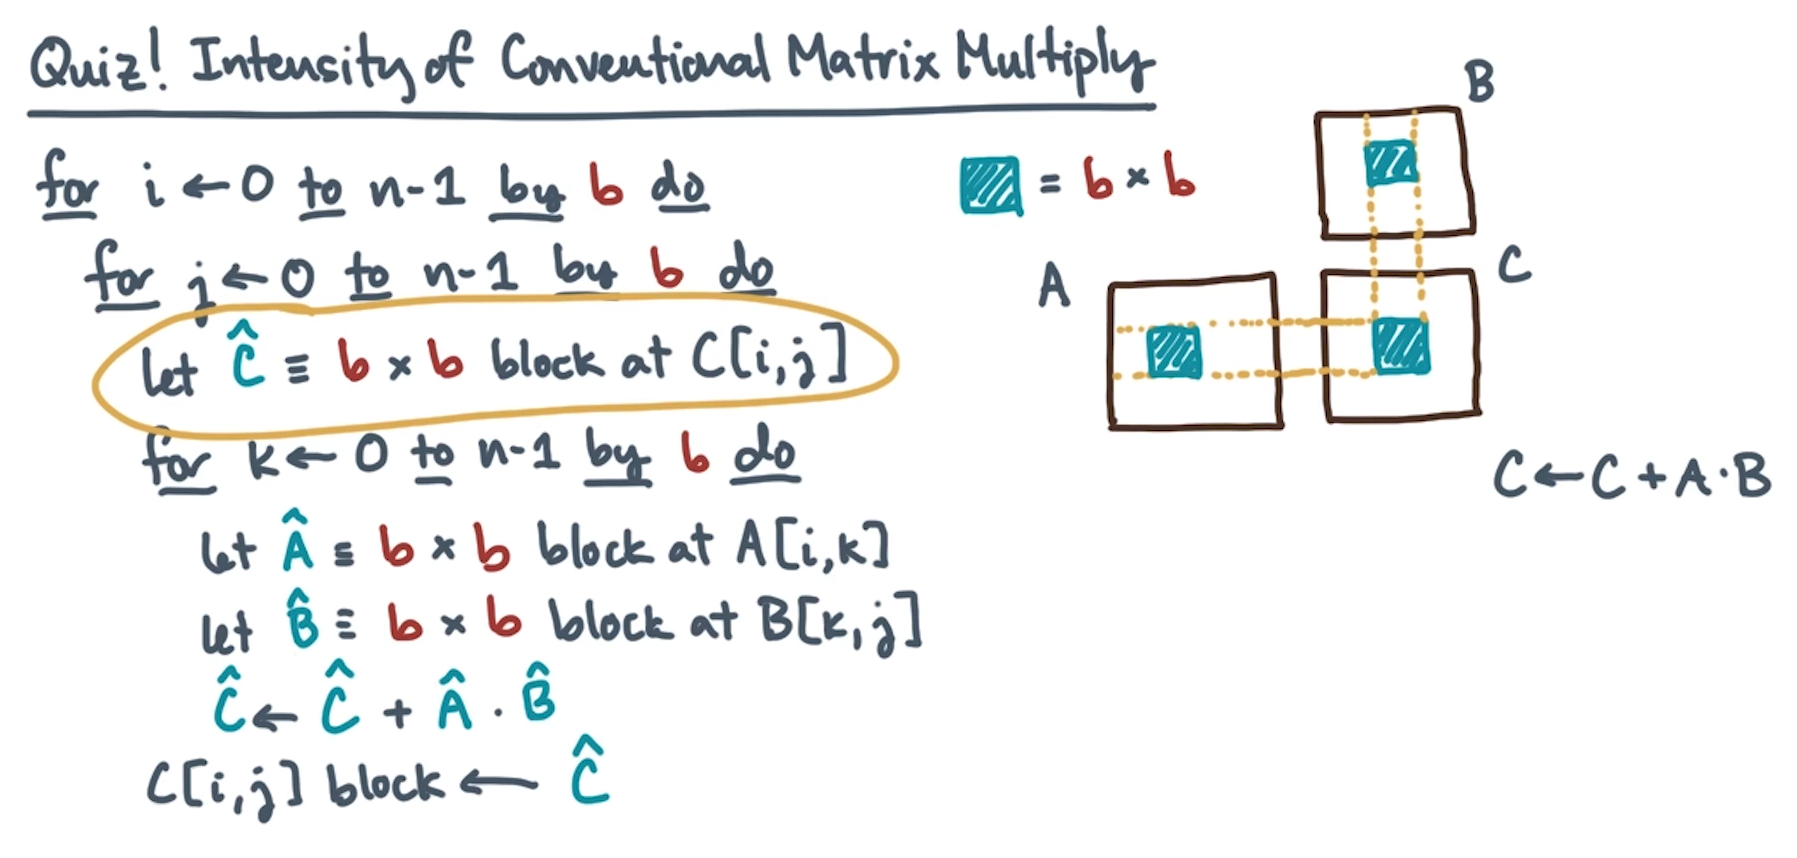 Quiz! Intensity of Conventional Matrix Multiply
for i ← 0 to n-1 by b do
for j ← 0 to n-1 by b do
let Ĉ ≡ b × b block at C[i,j]
for k ← 0 to n-1 by b do
let Â ≡ b × b block at A[i,k]
let B̂ ≡ b × b block at B[k,j]
Ĉ ← Ĉ + Â · B̂
C[i,j] block ← Ĉ
= b × b
B
A
C
C ← C + A·B